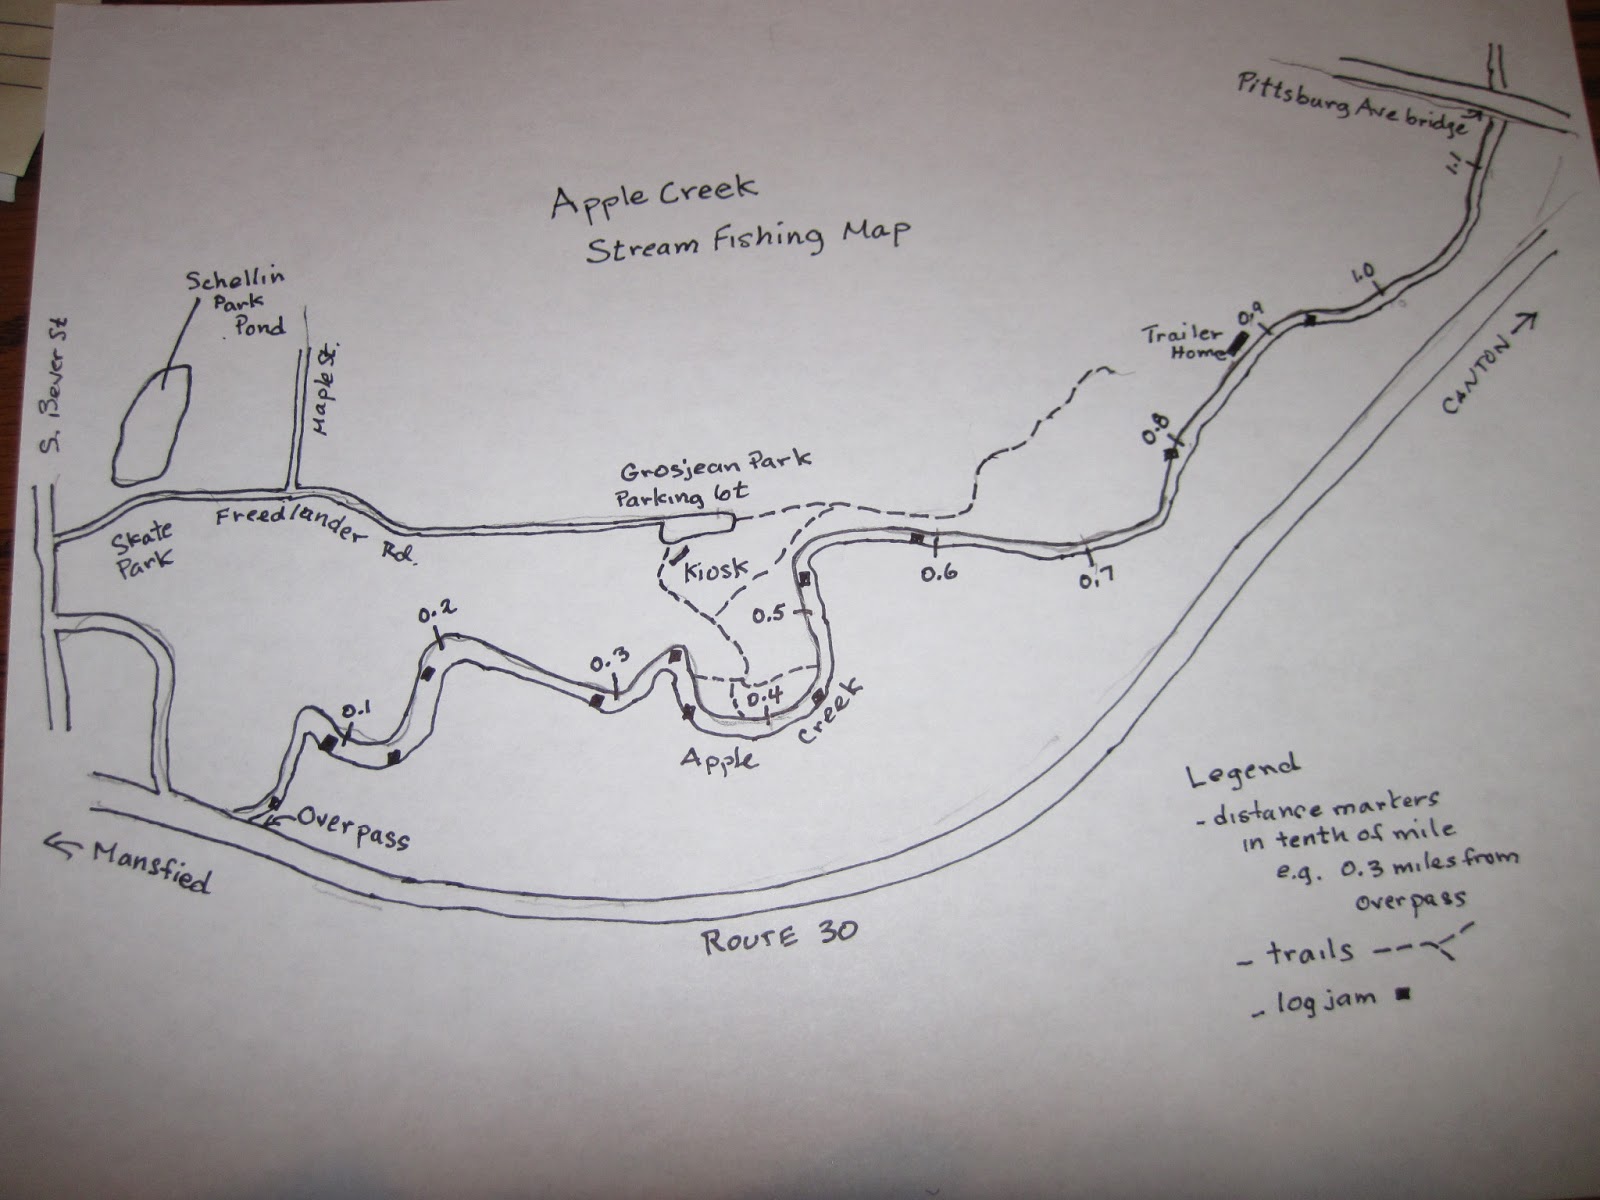 Apple Creek
Stream Fishing Map
Pittsburg Ave bridge
1.1
1.0
0.9
Trailer
Home
0.8
CANTON
Schellin
Park
Pond
S. Bever St
Maple St.
Grosjean Park
Parking lot
Freedlander Rd.
Skate
Park
Kiosk
0.7
0.6
0.5
0.4
0.3
0.2
0.1
Apple Creek
Overpass
Mansfied
ROUTE 30
Legend
- distance markers
in tenth of mile
e.g. 0.3 miles from
overpass
- trails
- log jam